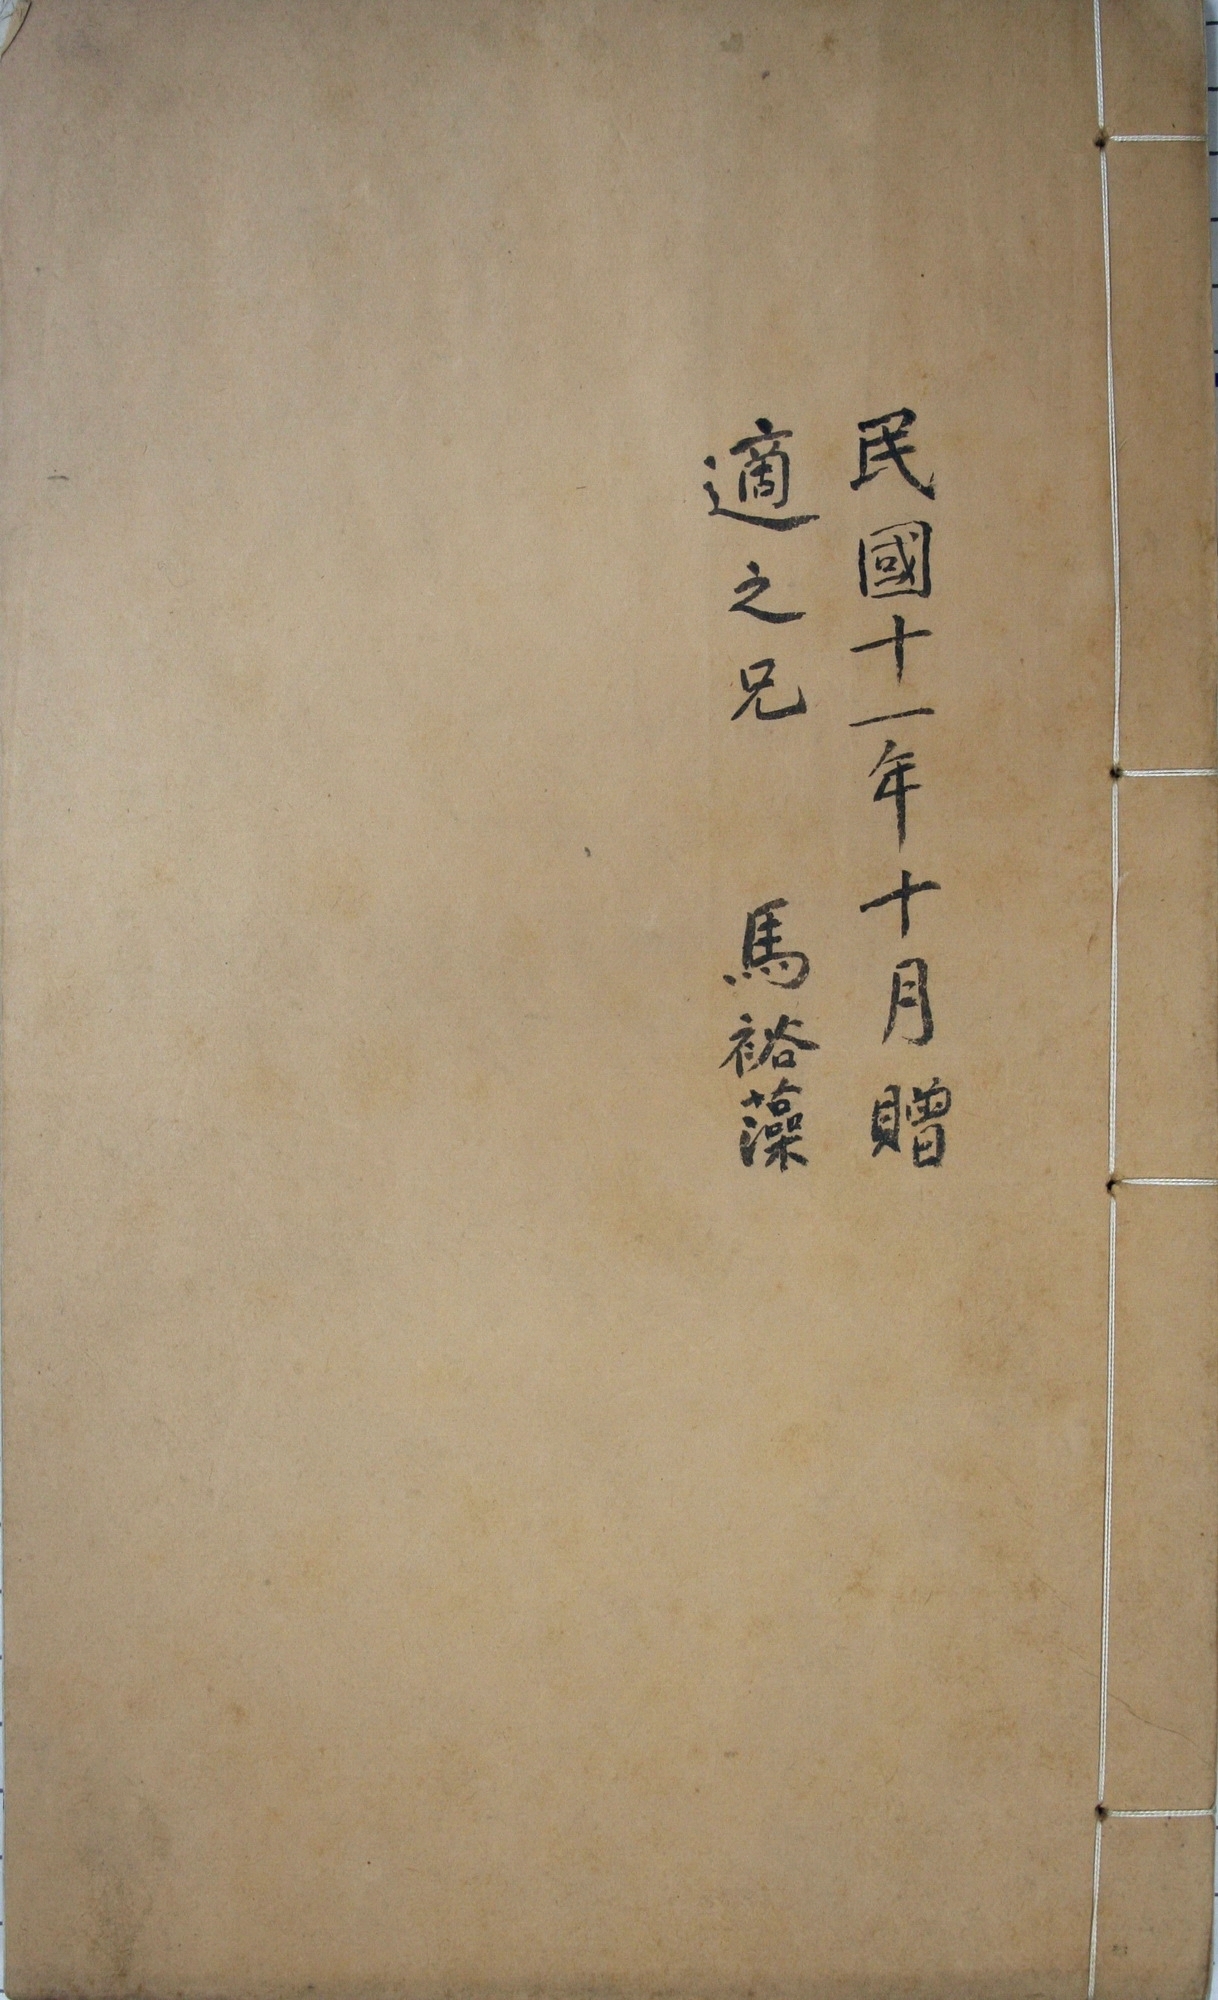 民國十一年十月贈
適之兄 馬裕藻